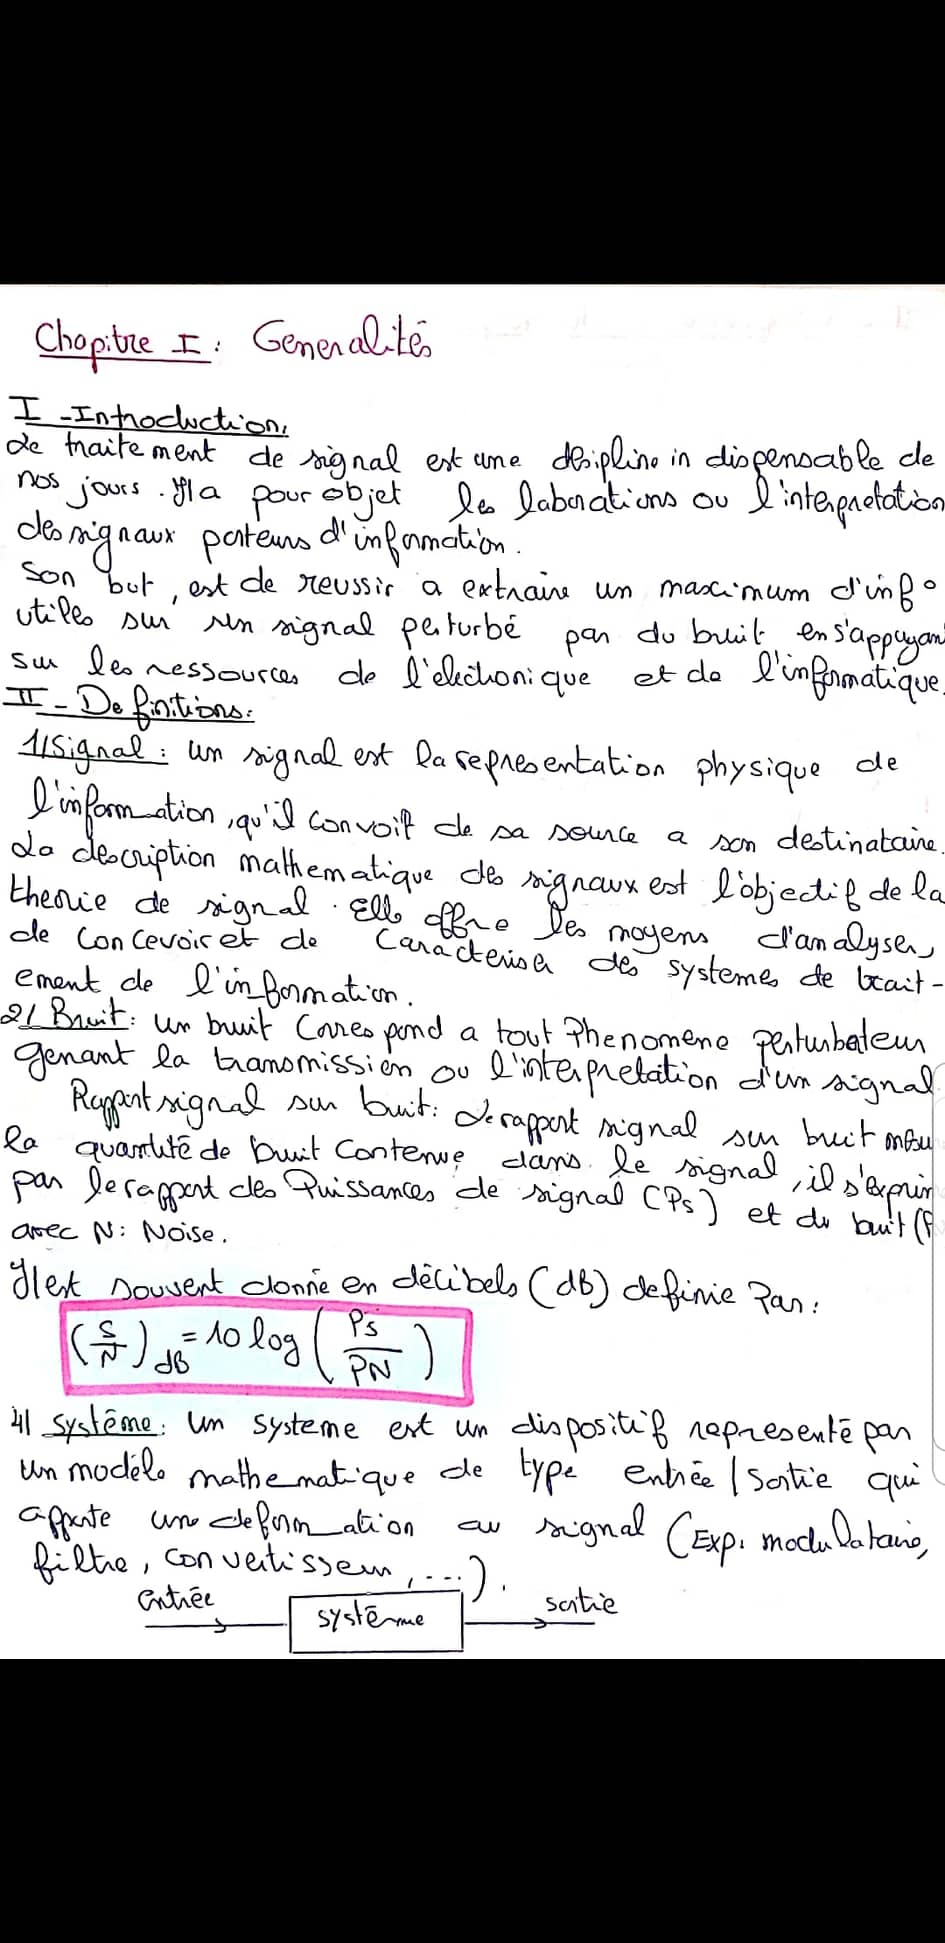 Chapitre I : Generalités
I - Introduction.
Le traitement de signal est une desipline indispensable de
nos jours. Il a pour objet les laborations ou l'interpretation
des signaux porteurs d'information.
Son but, est de reussir a extraire un maximum d'info
utiles sur un signal perturbé par du bruit en s'appuyant
sur les ressources de l'electronique et de l'informatique.
II - Definitions:
1/ Signal : un signal est la representation physique de
l'information, qu'il convoit de sa source a son destinataire.
La description mathematique des signaux est l'objectif de la
theorie de signal. Elle offre les moyens d'analyser,
de concevoir et de caracteriser des systemes de trait-
ement de l'information.
2/ Bruit : un bruit correspond a tout Phenomene perturbateur
genant la transmission ou l'interpretation d'un signal.
Rapport signal sur bruit: Le rapport signal sur bruit mesu
la quantité de bruit contenue dans le signal, il s'exprim
par le rapport des Puissances de signal (Ps) et du bruit (P
avec N: Noise.
Il est souvent donné en décibels (dB) definie Par:
(S/N)dB = 10 log (Ps/PN)
4/ système : un systeme est un dispositif representé par
un modéle mathematique de type entrée / Sortie qui
apporte une deformation au signal (Exp. modulataire,
filtre, convertisseur, ....).
entrée système sortie